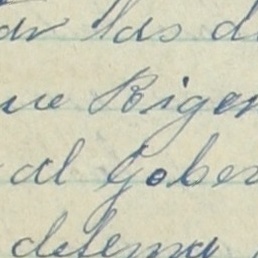 ar las d
ue Bigen
al Gober
desema